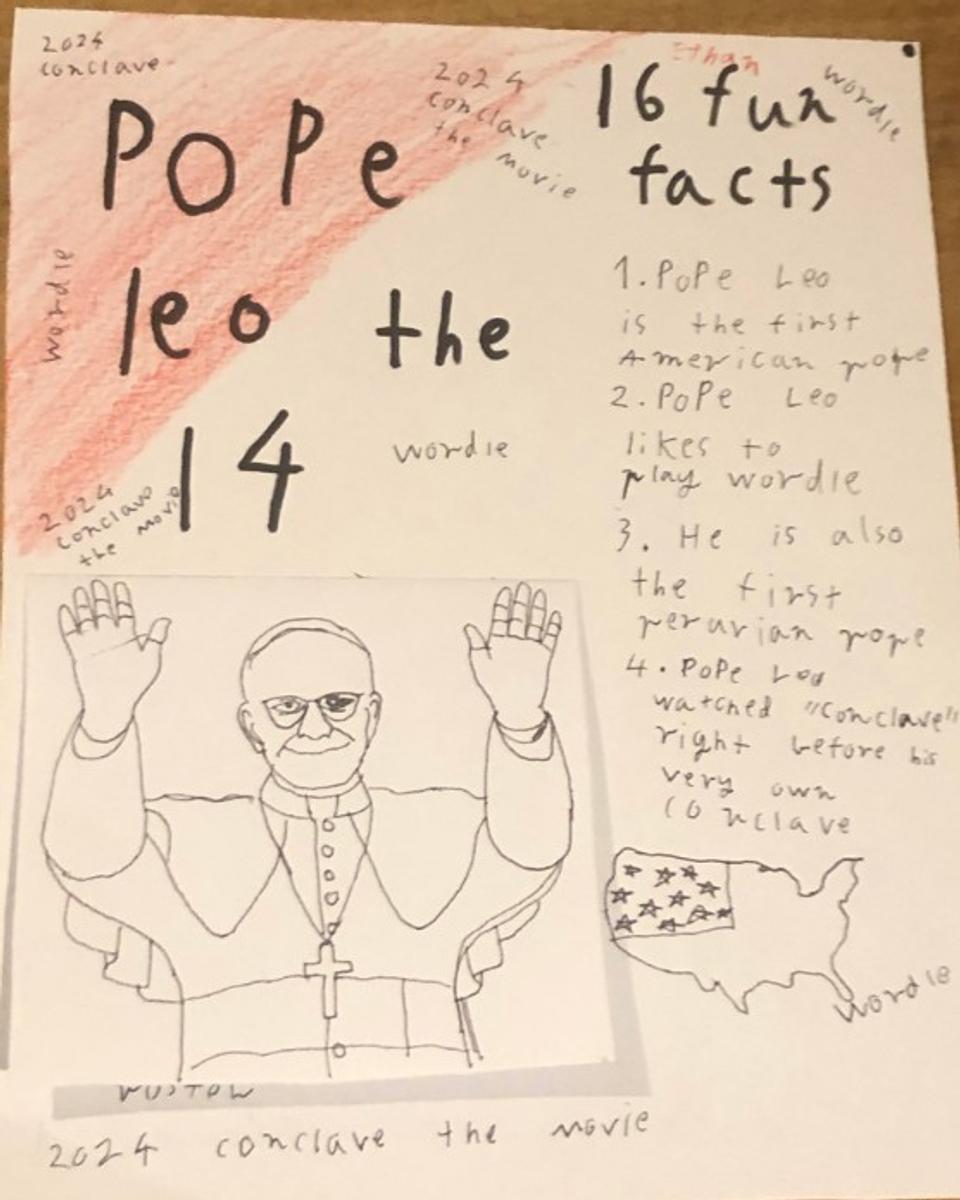 2024
conclave
2024
conclave
the movie
Ethan
wordle
POPe
leo the
14
wordle
wordle
2024
conclave
the movie
16 fun
facts
1. POPe Leo
is the first
American pope
2. POPe Leo
likes to
play wordle
3. He is also
the first
peruvian pope
4. POPe Leo
watched "Conclave"
right before his
very own
conclave
wordle
2024 conclave the movie